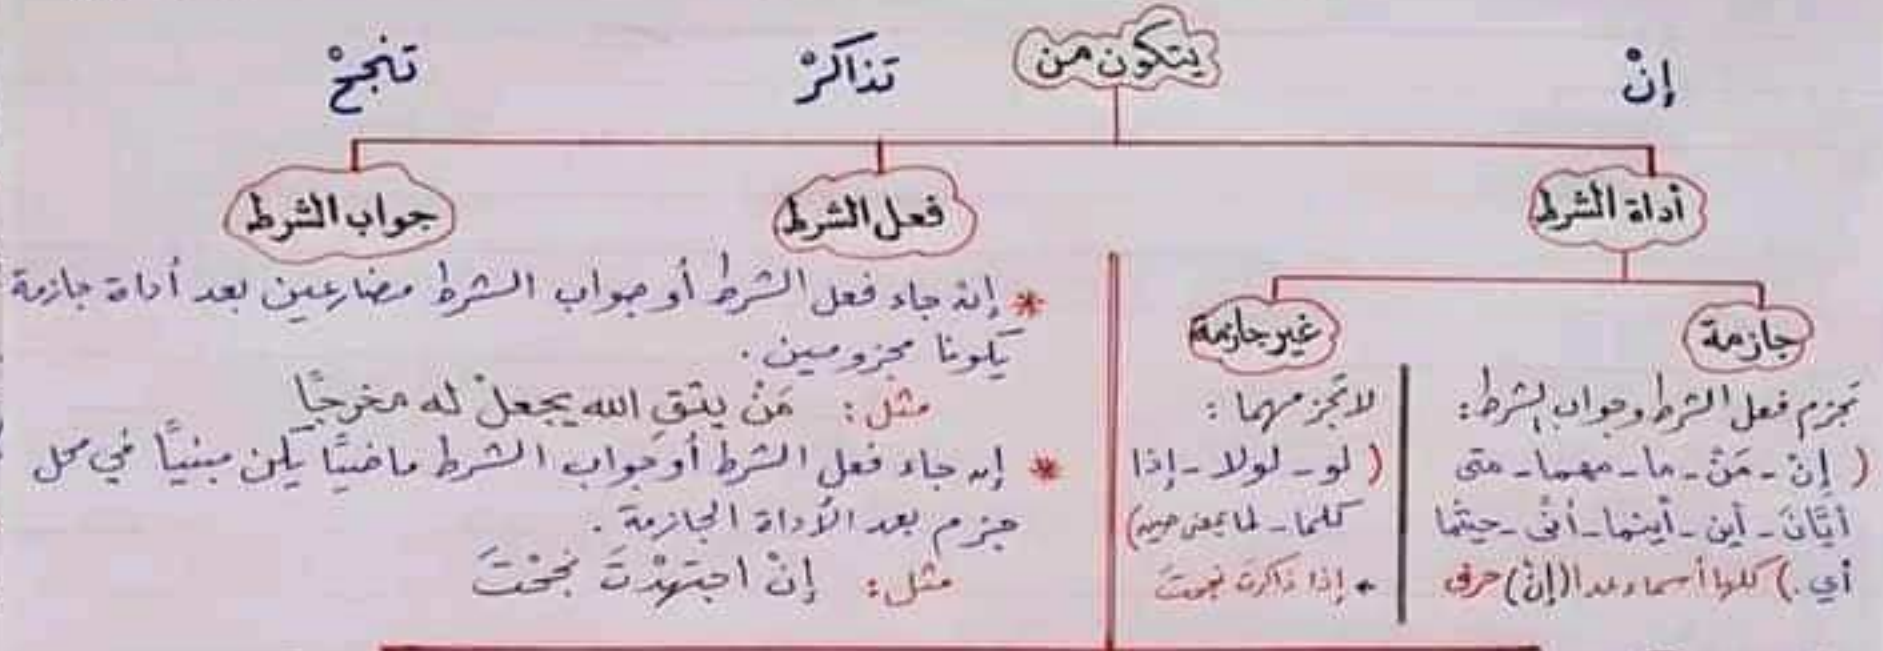 يتكون من
إنْ تذاكرْ تنجحْ
أداة الشرط
فعل الشرط
جواب الشرط
جازمة
غير جازمة
تجزم فعل الشرط وجواب الشرط:
( إنْ - مَنْ - ما - مهما - متى
أيَّانَ - أين - أينما - أنَّى - حيثما
أي .) كلها أسماء عدا (إنْ) حرف
لا تجزمهما :
( لو - لولا - إذا
كلما - لما بمعنى حين)
← إذا ذاكرت نجحت
* إن جاء فعل الشرط أو جواب الشرط مضارعين بعد أداة جازمة
يكونا مجزومين .
مثل : مَنْ يتق الله يجعلْ له مخرجًا
* إن جاء فعل الشرط أو جواب الشرط ماضيًا يكن مبنيًا في محل
جزم بعد الأداة الجازمة .
مثل : إنْ اجتهدْتَ نجحْتَ